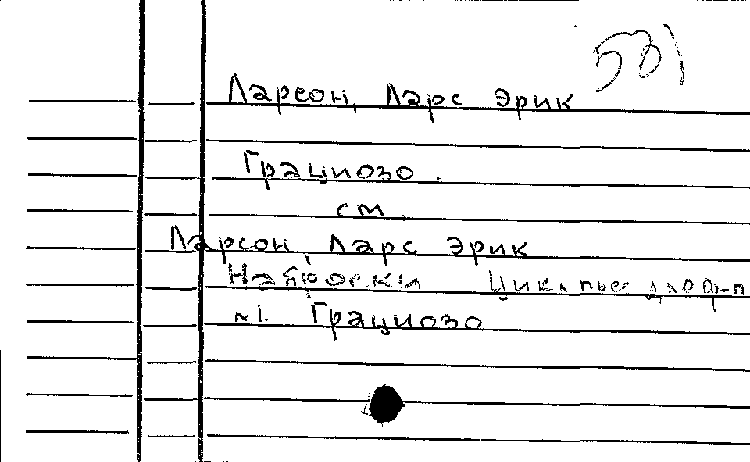 531
Ларсон, Ларс Эрик
Грациозо.
см.
Ларсон, Ларс Эрик
Наброски Цикл пьес для ф-п
№1. Грациозо